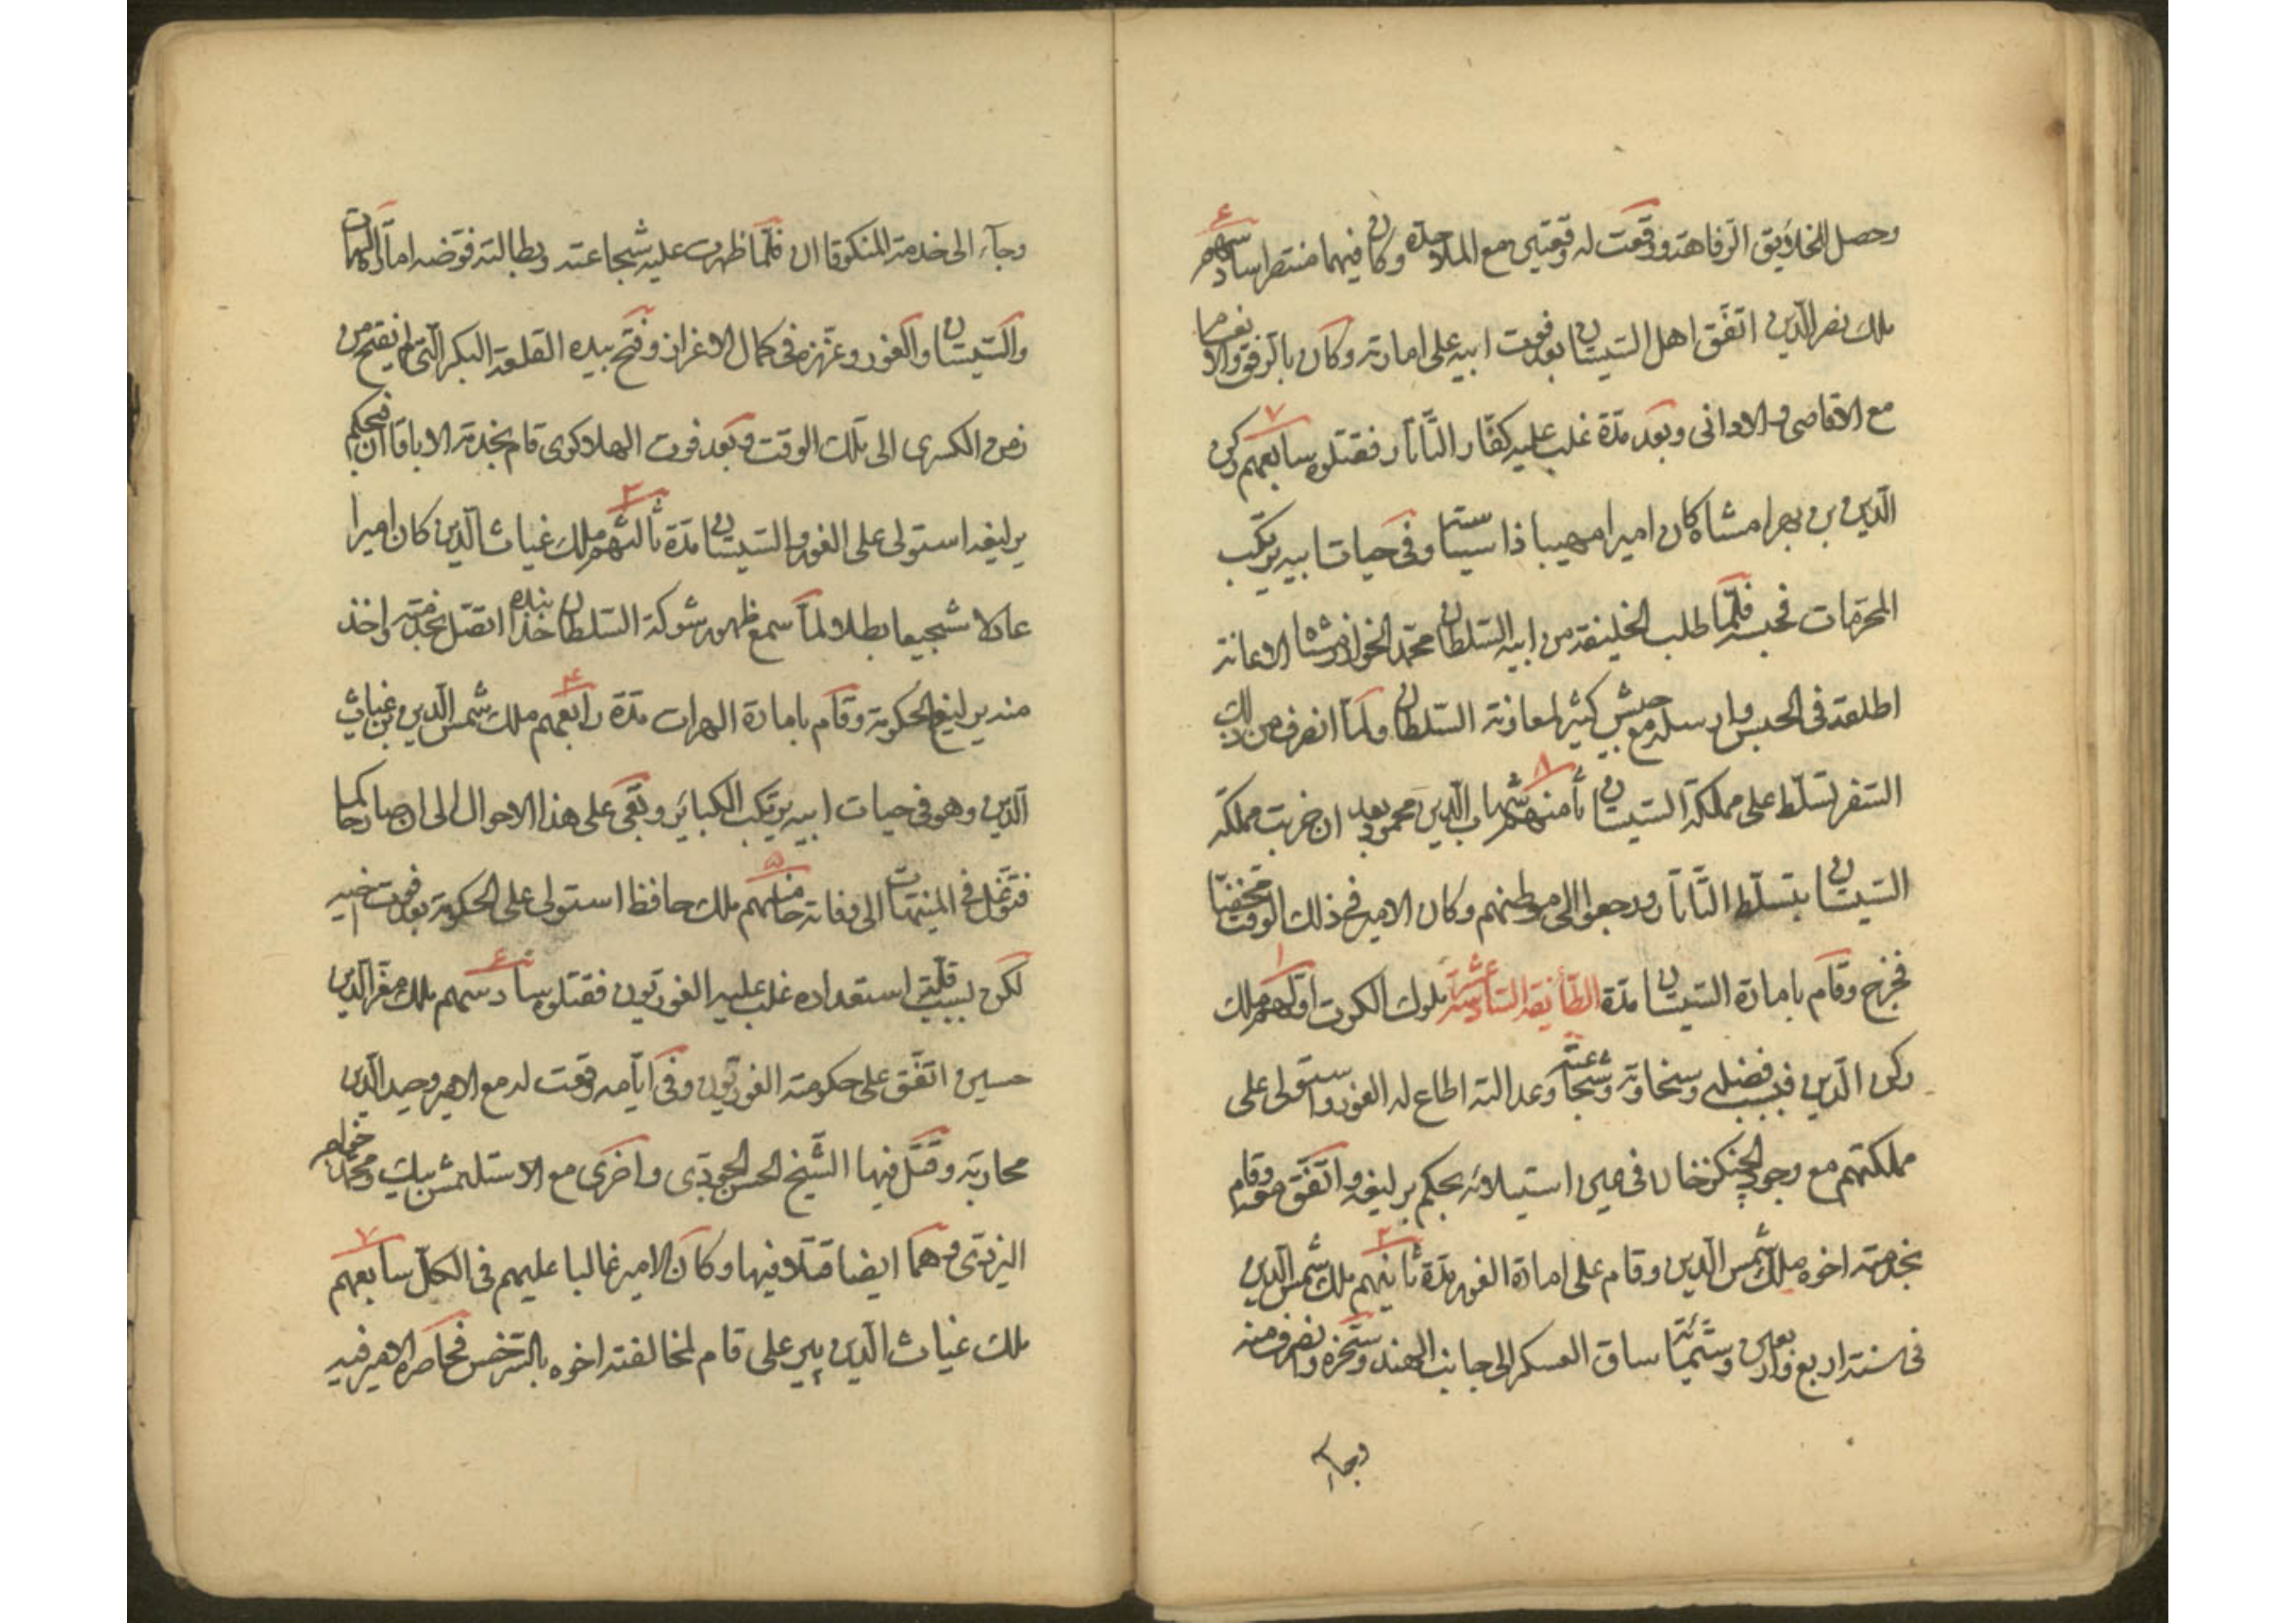 وحصل للخلايق الرفاهة ووقعت له وقعتين مع الملاحدة وكان فيهما منتصرا سادسهم
ملك نصر الدين اتفق اهل السيستان بعد فوت ابيه على امارته وكان بالرفق والانعام
مع الاقاصى والادانى وبعد مدة غلب عليه كفار التاتار فقتلوه سابعهم ركن
الدين بن بهرامشاه كان اميرا مهيبا ذا سياسة وفى حيات ابيه يرتكب
المحرمات فحبسه فلما طلب الخليفة من ابيه السلطان محمد الخوارزمشاه الاعانة
اطلقه فى الحبس وارسله مع جيش كثير لمعاونة السلطان ولما انصرف من ذلك
السفر تسلط على مملكة السيستان ثامنهم شهاب الدين محمود بعد ان خربت مملكة
السيستان بتسلط التاتار ورجعوا الى موطنهم وكان الامير فى ذلك الوقت مختفيا
فخرج وقام بامارة السيستان مدة الطائفة السادسة عشر ملوك الكرت اولهم ملك
ركن الدين فبسبب فضله وسخاوته وشجاعته وعدالته اطاع له الغور واستولى على
مملكتهم مع وجود الجنكزخان فى حين استيلائه بحكم يرليغه واتفق معه وقام
بخدمته اخوه ملك شمس الدين وقام على امارة الغور مدة ثانيهم ملك شمس الدين
فى سنة اربع واربعين وستمائة ساق العسكر الى جانب الهند وسخره وانصرف منه
وجاء
وجاء الى خدمة المنكوقاان فلما ظهرت عليه شجاعته وبطالته فوضه امارة الهرات
والسيستان والغور وعززه فى كمال الاعزاز وفتح بيده القلعة البكر التى لم تفتح من
زمن الكسرى الى تلك الوقت وبعد فوت الهلاكوى قام بخدمة الاباقاان فبحكم
يرليغه استولى على الغور والسيستان مدة ثالثهم ملك غياث الدين كان اميرا
عادلا شجيعا بطلا لما سمع ظهور شوكة السلطان خدابنده اتصل بخدمته واخذ
منه يرليغ الحكومة وقام بامارة الهرات مدة رابعهم ملك شمس الدين بن غياث
الدين وهو فى حيات ابيه يرتكب الكبائر وبقى على هذا الاحوال الى ان صار حاكما
فتوغل فى المنهيات الى وفاته خامسهم ملك حافظ استولى على الحكومة بعد فوت اخيه
لكن بسبب قلة استعداده غلب عليه الغوريون فقتلوه سادسهم ملك معز الدين
حسين اتفق على حكومته الغوريون وفى ايامه وقعت له مع الامير وحيد الدين
محاربة وقتل فيها الشيخ الحسن الجورى واخرى مع الاستلمش بيك ومحمد خواجه
اليزدى وهما ايضا قتلا فيها وكان الامير غالبا عليهم فى الكل سابعهم
ملك غياث الدين پير على قام لمخالفته اخوه بالسرخس فحاصره الامير فيه